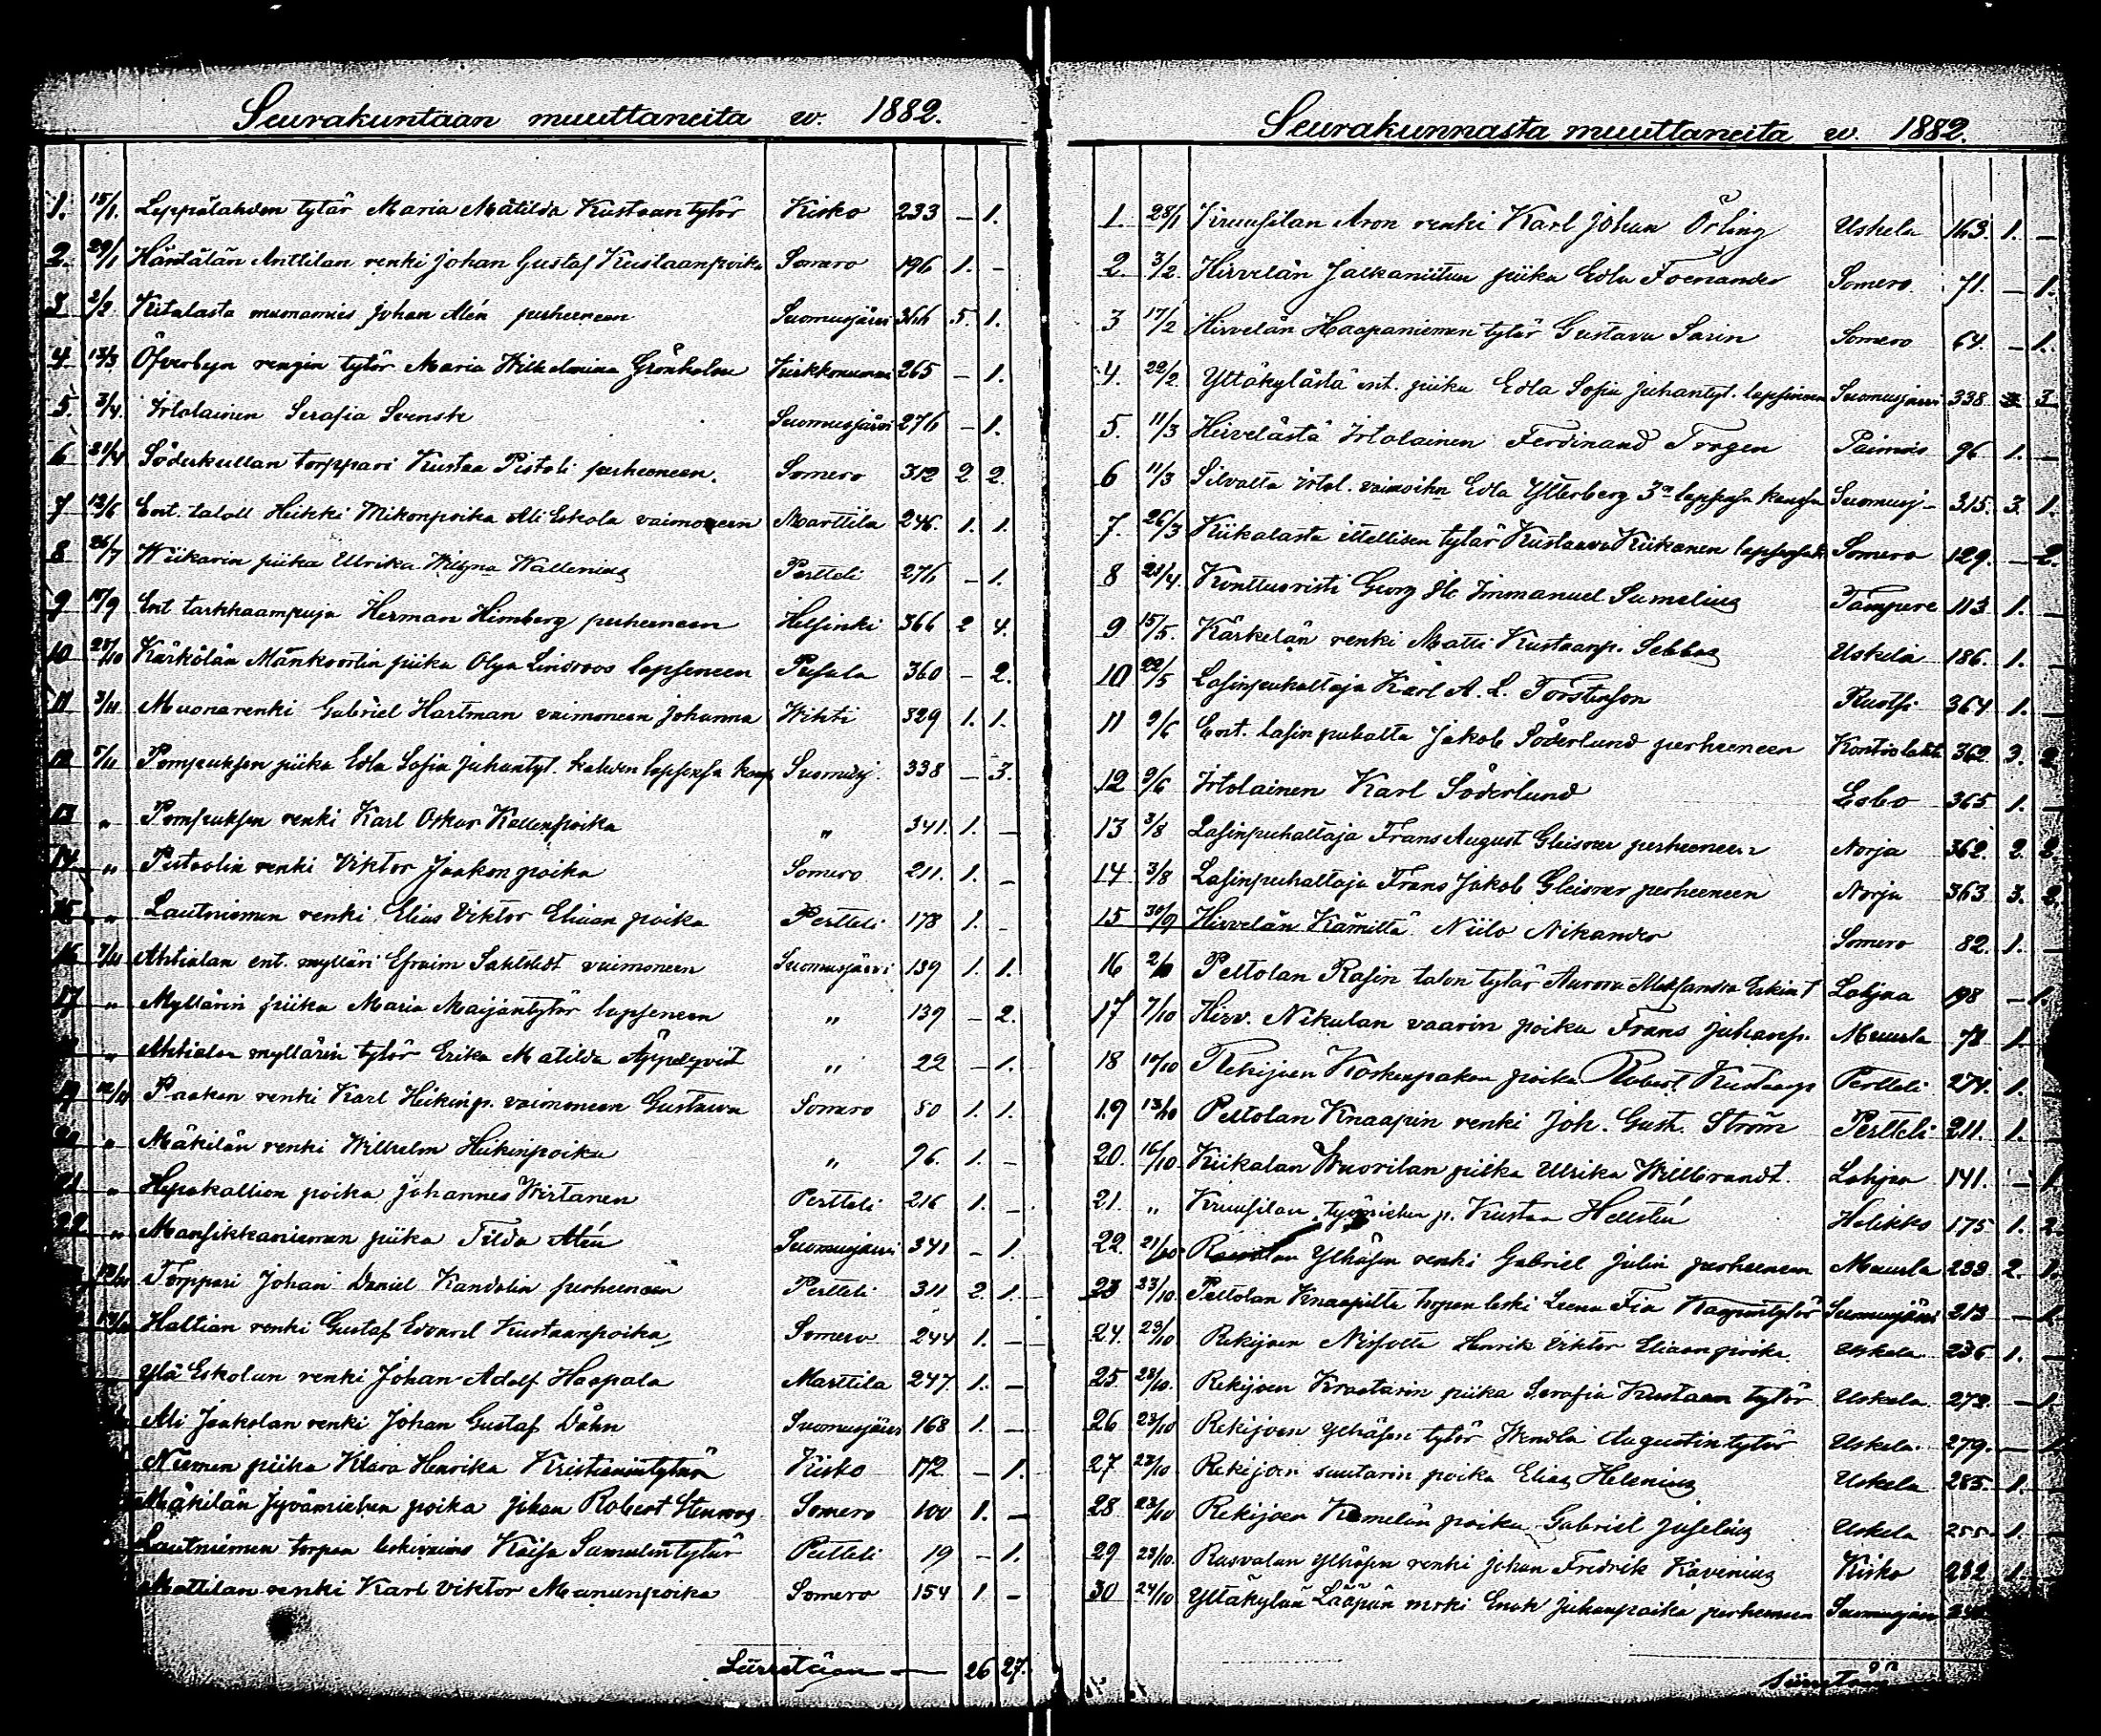 Seurakuntaan muuttaneita w. 1882.
1. 15/1. Leppälahden tytär Maria Matilda Kustaantytör Kisko 233 – 1.
2. 29/1 Häntälän Anttilan renki Johan Gustaf Kustaanpoika Somero 196 1. –
3 2/2. Kitalasta muonamies Johan Alén perheeneen Suomusjärvi 366 5. 1.
4 13/3 Öfverbyn rengin tytör Maria Wilhelmina Grönholm Kirkkonummi 265 – 1.
5. 3/4. Irtolainen Serafia Svensk Suomusjärvi 276 – 1.
6 21/4 Söderkullan torppari Kustaa Pistoli perheeneen. Somero 312 2 2.
7 12/6 Ent. taloll Heikki Mikonpoika Ali Eskola vaimoneen Marttila 246. 1. 1.
8 26/7 Wiikarin piika Ulrika Wallenius Pertteli 276 – 1.
9 15/9 Ent tarkkaampuja Herman Himberg perheeneen Helsinki 366 2 4.
10 28/10 Kärkölän piika Olga Lindroos lapseneen Pusula 360 – 2.
11 3/11 Muonarenki Gabriel Hartman vaimoneen Johanna Wihti 329 1. 1.
12 5/11 Pompuksen piika Edla Sofia Juhantyt. kahden lapsensa Suomusj. 338 – 3.
13 „ Pompuksen renki Karl Oskar Kallenpoika „ 341. 1. –
14 „ Pistoolin renki Viktor Jaakonpoika Somero 211. 1. –
15 „ Lautniemen renki Elias Viktor Eliaan poika Pertteli 178 1. –
16 7/11 Ahtialan ent. mylläri Efraim Sahlstedt vaimoneen Suomusjärvi 139 1. 1.
17 „ Myllärin piika Maria Maijantytör lapseneen „ 139 – 2.
„ Ahtialan myllärin tytör Erika Matilda Äppelqvist „ 22 – 1.
19 12/11 Paakan renki Karl Heikinp. vaimoneen Gustava Somero 50 1. 1.
20 „ Mäkilän renki Wilhelm Heikinpoika „ 96. 1. –
21 „ Hepokallion poika Johannes Wirtanen Pertteli 216 1. –
22 „ Mansikkaniemen piika Tilda Alén Suomusjärvi 341 – 1.
Torppari Johan Daniel Kandolin perheeneen Pertteli 311 2. 1.
Haltian renki Gustaf Edvard Kustaanpoika Somero 244 1. –
Ylä Eskolan renki Johan Adolf Haapala Marttila 247. 1. –
Ali Jaakolan renki Johan Gustaf Dahn Suomusjärvi 168 1. –
Niemen piika Klara Henrika Kristianintytär Kisko 172 – 1.
Mäkilän Jyvämiehen poika Johan Robert Stenroos Somero 100 1. –
Lautniemen torpan leskivaimo Kaisa Samulintytär Pertteli 19 – 1.
Mattilan renki Karl Viktor Manunpoika Somero 154 1. –
Siirretään — 26 27.
Seurakunnasta muuttaneita w. 1882.
1. 28/1 Kruusilan Aron renki Karl Johan Örling Uskela 163. 1. –
2. 3/2. Hirvelän Jalkaniitun piika Edla Foenander Somero 71. – 1.
3 17/2 Hirvelän Haapaniemen tytär Gustava Sarin Somero 64. – 1.
4. 22/2. Yltäkylästä ent. piika Edla Sofia Juhantyt. lapsineen Suomusjärvi 338 3
5. 11/3 Hirvelästä Irtolainen Ferdinand Trogen Paimio 96 1. –
6 11/3 Silvolta irtol. vaimoihn Edla Ytterberg 3a lapsensa kanssa Suomusj– 315. 3. 1.
7. 26/3 Kiikalasta itellisen tytär Kustaava Kiikanen Somero 129. – 2.
8 21/4. Konttuoristi Georg Immanuel Sumelius Tampere 113 1. –
9 15/5. Kärkelän renki Matti Kustaanp. Sebbas Uskela 186. 1. –
10 22/5 Lasinpuhaltaja Karl A. L. Torstenson Ruotsi 364 1. –
11 9/6 Ent. lasin puhalta Jakob Söderlund perheeneen Kontiolahti 362. 3. 2.
12 9/6 Irtolainen Karl Söderlund Esbo 365 1. –
13 3/8 Lasinpuhaltaja Frans August Gleisner perheeneen Norja 362. 2. 2.
14 3/8 Lasinpuhaltaja Frans Jakob Gleisner perheeneen Norja 363 3. 2.
15 30/9 Hirvelän Kämiltä Niilo Nikander Somero 82. 1. –
16 2/10 Peltolan Rasin talon tytär Aurora Aleksandra Eskint Lohjaa 198 – 1.
17 7/10 Hirv. Nikulan vaarin poika Frans Juhanp. Muurla 78 1.
18 10/10 Rekijoen Koskenpakan poika Robert Kustaanp Pertteli 274. 1.
19 13/10 Peltolan Knaapin renki Joh. Gust. Ström Pertteli 211. 1.
20. 16/10. Kiikalan Wuorilan piika Ulrika Willbrandt. Lohja 141. – 1
21. „ Kruusilan työmiehen p. Kustaa Hellstén Halikko 175 1. 2.
22. 21/10 Rasvalan Ylhäsen renki Gabriel Julin perheeneen Muurla 293. 2. 1.
23 23/10. Peltolan Knaapilta torpan leski Leena Fia Suomusjärvi 213 – 1.
24. 23/10 Rekijoen Henrik Viktor Eliaanpoika. Uskela 236 1. –
25. 23/10. Rekijoen Kraatarin piika Serafia Kustaan tytör Uskela. 272. – 1
26 23/10 Rekijoen Ylhäsen tytör Wendla Augustintytör Uskela. 279. – 1
27 23/10 Rekijoen suutarin poika Elias Helenius Uskela 285. 1.
28. 23/10 Rekijoen poika Gabriel Juselius Uskela 255. 1. –
29 23/10. Rasvalan Ylhäsen renki Johan Fredrik Kavenius Kisko 282 1. –
30 24/10 Yltäkylän Lääpän renki Enok Juhanpoika perheeneen Suomusjärvi
Siirretään